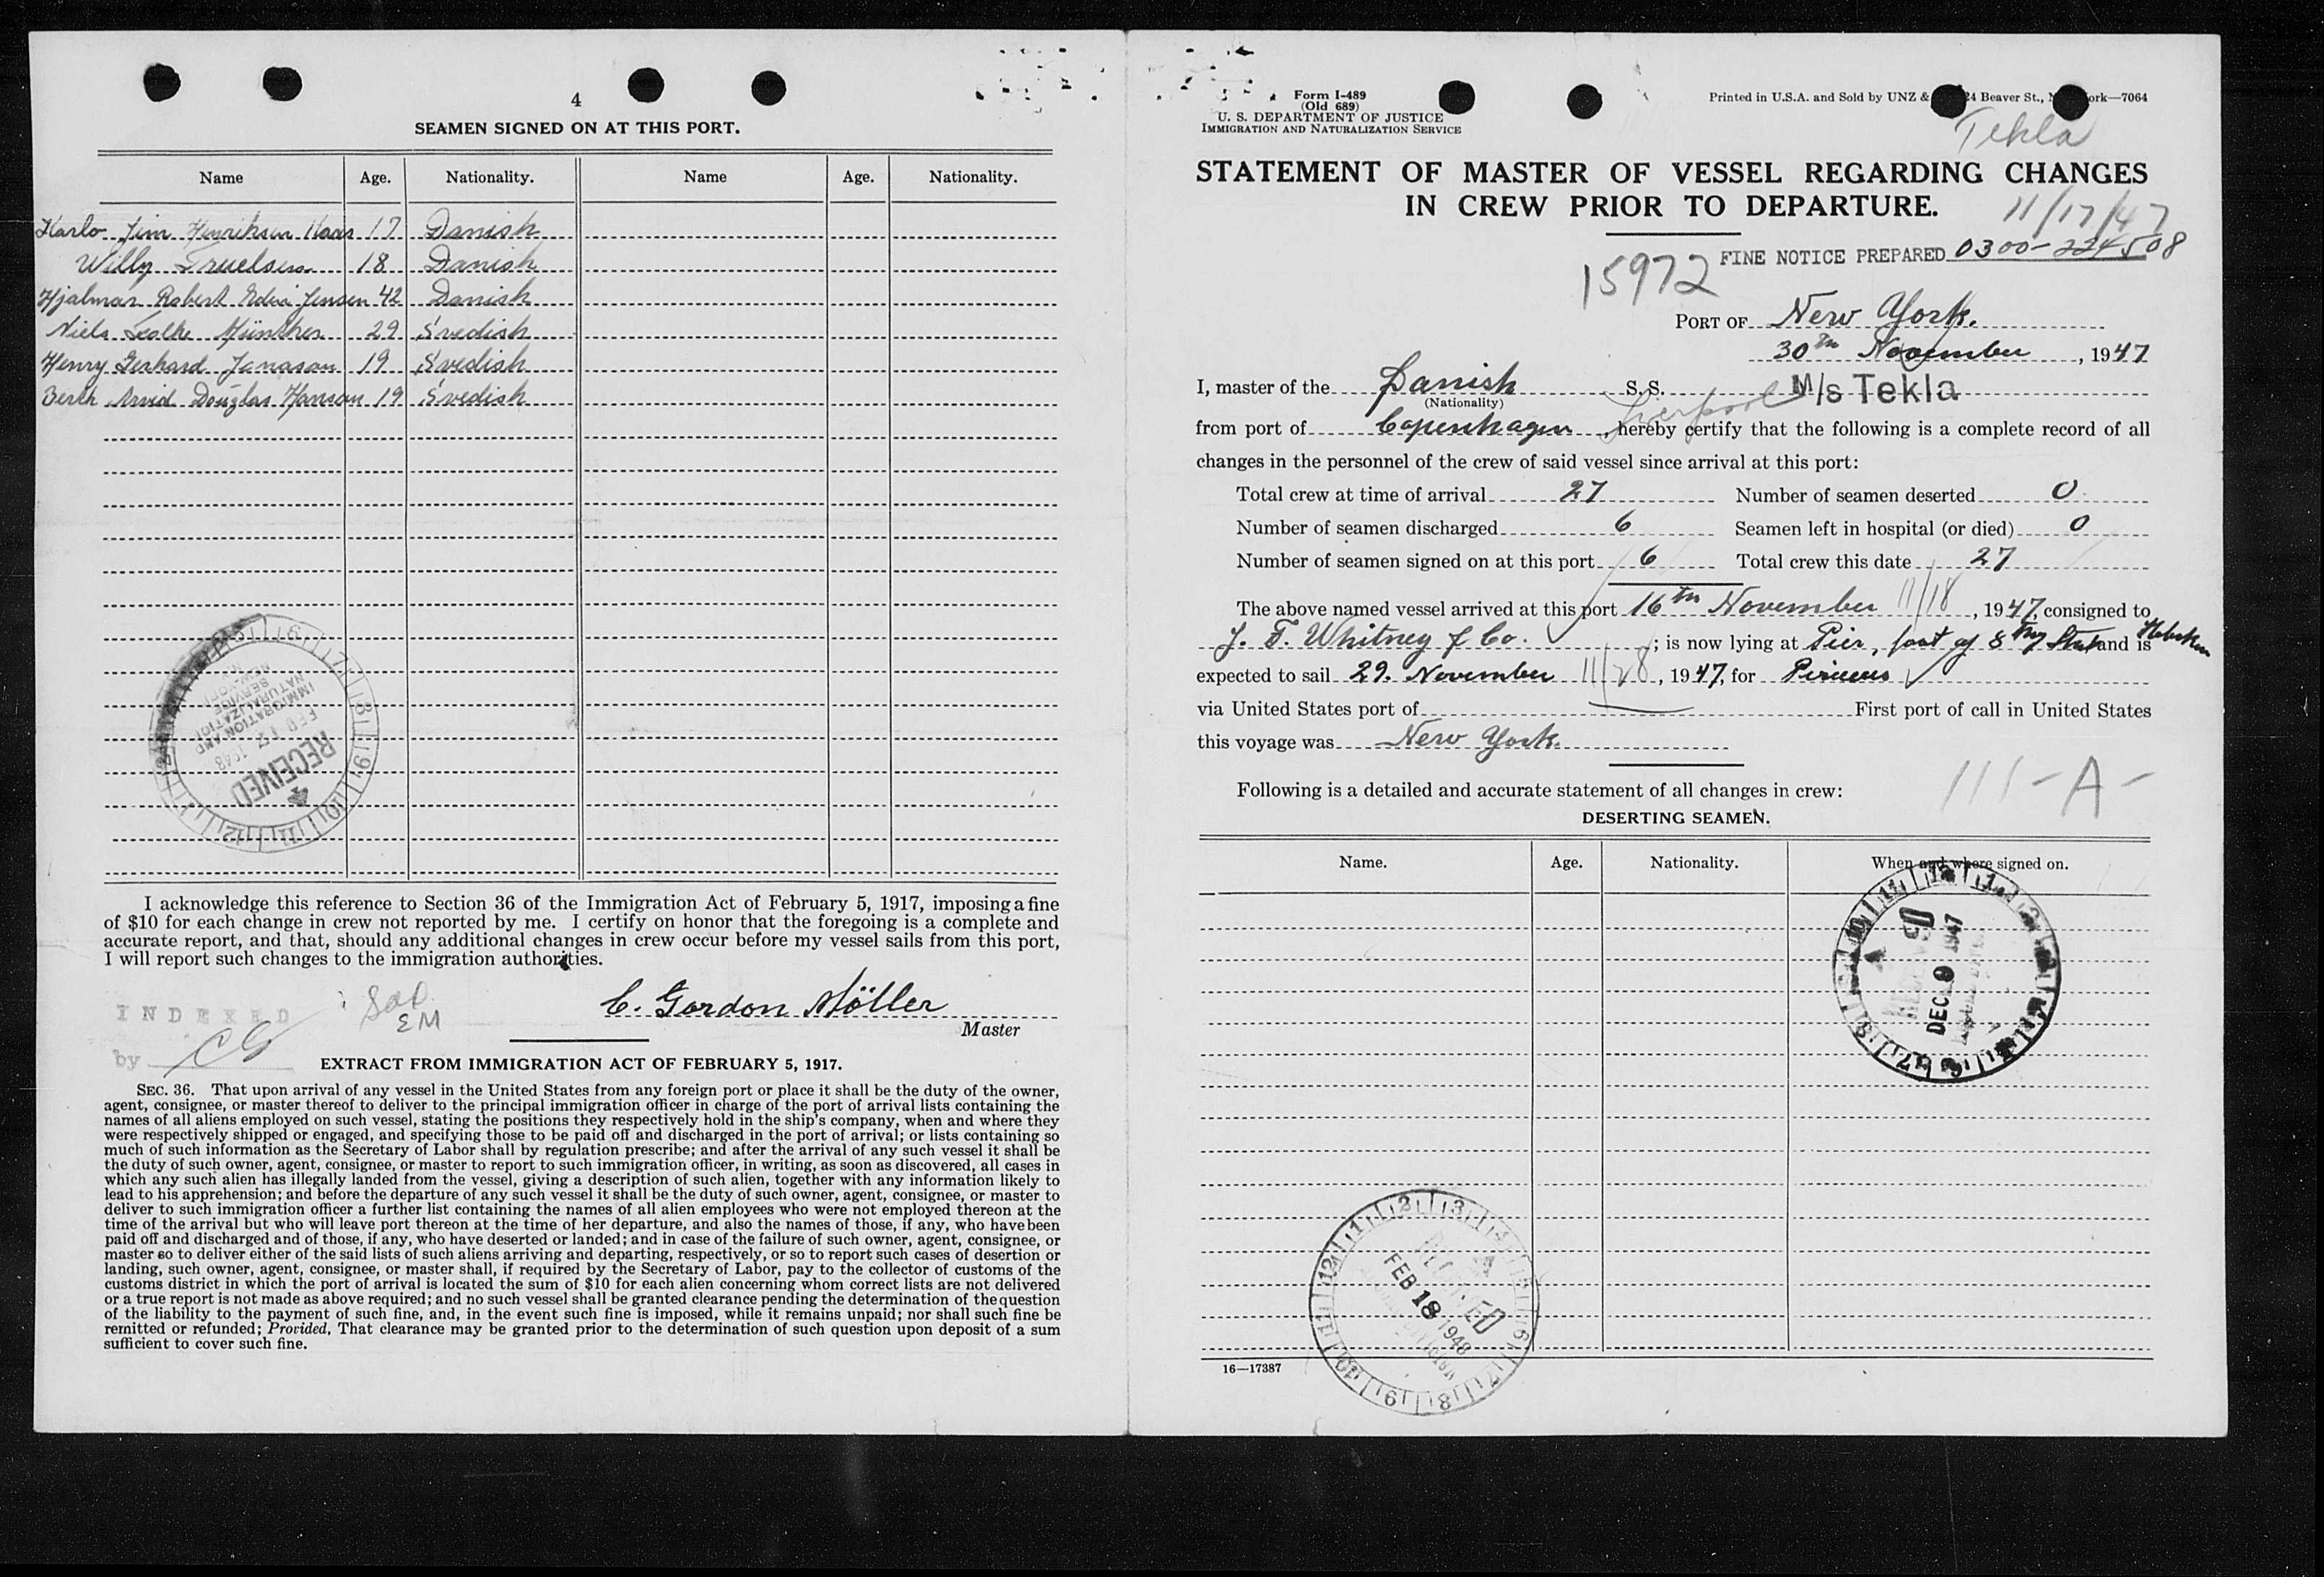 4
SEAMEN SIGNED ON AT THIS PORT.
Name Age. Nationality. Name Age. Nationality.
Karlo Jim Henriksen Kaas 17 Danish
Willy Truelsen 18 Danish
Hjalmar Robert Jensen 42 Danish
Niels 29 Svedish
Henry Gerhard Jonasson 19 Svedish
Arvid Douglas Hanson 19 Svedish
RECEIVED
FEB 17 1948
IMMIGRATION AND
NATURALIZATION
SERVICE
I acknowledge this reference to Section 36 of the Immigration Act of February 5, 1917, imposing a fine
of $10 for each change in crew not reported by me. I certify on honor that the foregoing is a complete and
accurate report, and that, should any additional changes in crew occur before my vessel sails from this port,
I will report such changes to the immigration authorities.
INDEXED
by CG
EM
C. Gordon Möller
Master
EXTRACT FROM IMMIGRATION ACT OF FEBRUARY 5, 1917.
SEC. 36. That upon arrival of any vessel in the United States from any foreign port or place it shall be the duty of the owner,
agent, consignee, or master thereof to deliver to the principal immigration officer in charge of the port of arrival lists containing the
names of all aliens employed on such vessel, stating the positions they respectively hold in the ship's company, when and where they
were respectively shipped or engaged, and specifying those to be paid off and discharged in the port of arrival; or lists containing so
much of such information as the Secretary of Labor shall by regulation prescribe; and after the arrival of any such vessel it shall be
the duty of such owner, agent, consignee, or master to report to such immigration officer, in writing, as soon as discovered, all cases in
which any such alien has illegally landed from the vessel, giving a description of such alien, together with any information likely to
lead to his apprehension; and before the departure of any such vessel it shall be the duty of such owner, agent, consignee, or master to
deliver to such immigration officer a further list containing the names of all alien employees who were not employed thereon at the
time of the arrival but who will leave port thereon at the time of her departure, and also the names of those, if any, who have been
paid off and discharged and of those, if any, who have deserted or landed; and in case of the failure of such owner, agent, consignee, or
master so to deliver either of the said lists of such aliens arriving and departing, respectively, or so to report such cases of desertion or
landing, such owner, agent, consignee, or master shall, if required by the Secretary of Labor, pay to the collector of customs of the
customs district in which the port of arrival is located the sum of $10 for each alien concerning whom correct lists are not delivered
or a true report is not made as above required; and no such vessel shall be granted clearance pending the determination of the question
of the liability to the payment of such fine, and, in the event such fine is imposed, while it remains unpaid; nor shall such fine be
remitted or refunded; Provided, That clearance may be granted prior to the determination of such question upon deposit of a sum
sufficient to cover such fine.
Form I-489
(Old 689)
U. S. DEPARTMENT OF JUSTICE
IMMIGRATION AND NATURALIZATION SERVICE
Printed in U.S.A. and Sold by UNZ & 24 Beaver St., ork—7064
Tekla
STATEMENT OF MASTER OF VESSEL REGARDING CHANGES
IN CREW PRIOR TO DEPARTURE.
11/17/47
FINE NOTICE PREPARED 0300-224508
15972
PORT OF New York.
30th November, 1947
I, master of the Danish S.S. M/s Tekla
(Nationality)
Liverpool
from port of Copenhagen, hereby certify that the following is a complete record of all
changes in the personnel of the crew of said vessel since arrival at this port:
Total crew at time of arrival 27 Number of seamen deserted 0
Number of seamen discharged 6 Seamen left in hospital (or died) 0
Number of seamen signed on at this port 6 Total crew this date 27
The above named vessel arrived at this port 16th November 11/18, 1947, consigned to
J. F. Whitney & Co.; is now lying at Pier, foot of 8 and is
expected to sail 29. November 11/28, 1947, for Piraeus
via United States port of First port of call in United States
this voyage was New York.
111-A-
Following is a detailed and accurate statement of all changes in crew:
DESERTING SEAMEN.
Name. Age. Nationality. When and where signed on.
RECEIVED
DEC 9 1947
RECEIVED
FEB 18 1948
16—17387